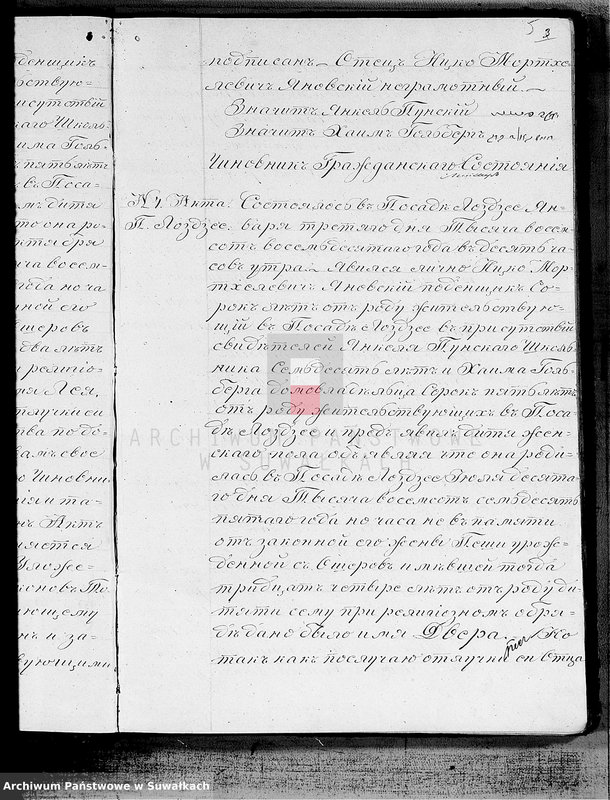 5 3
денщикъ
ствую=
исутствіи
каго Школь
има Голь=
пятьлѣтъ
въ Поса=
мъ дитя
то она ро=
ктября
яча восем=
года но ча
ной его
шеровъ
два лѣтъ
у религіо=
мя Лея,
тлучки си
тва подо=
амъ свое
о Чиновни
нія и та=
нъ Актъ
яется
Уложе=
коновъ По
ающему
нъ и за=
вующими
подписанъ – Отецъ Ицко Мортхе
левичъ Яновскій неграмотный. –
Значитъ Янкель Пунскій
Значитъ Хаимъ Гольбергъ
Чиновникъ Гражданскаго Состоянія
№ 4 Акта. Состоялось въ Посадѣ Лоздзее Ян=
П. Лоздзее. варя третяго дня Тысяча восем
сотъ восемьдесятаго года въ десять ча
совъ утра. – Явился лично Ицко Мор=
тхелевичъ Яновскій поденщикъ Со=
рокъ лѣтъ отъ роду жительствую=
щій въ Посадѣ Лоздзее въ присутствіи
свидѣтелей Янкеля Пунскаго Школь
ника Семьдесять лѣтъ и Хаима Голь=
берга домовладѣльца Сорокъ пять лѣтъ
отъ роду жительствующихъ въ Поса=
дѣ Лоздзее и предъявилъ дитя жен=
скаго пола объявляя что она роди=
лась въ Посадѣ Лоздзее Іюля десята=
го дня Тысяча восемсотъ семьдесятъ
пятаго года но часа не въ памяти
отъ законной его жены Пеши урож=
денной съ Ошеровъ имѣвшей тогда
тридцать четыре лѣтъ отъ роду ди=
тяти сему при религіозномъ обря=
дѣ дано было имя Двера. Но
такъ какъ послучаю отлучки си Отца
ARCHIWUM PAŃSTWOWE
W SUWAŁKACH
Archiwum Państwowe w Suwałkach